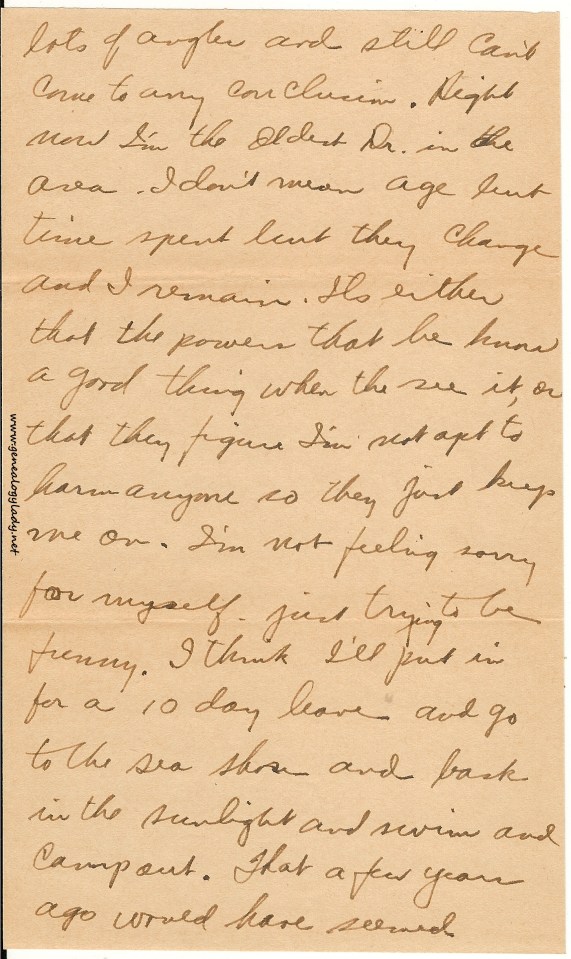 lots of angles and still can't
come to any conclusion. Right
now I'm the oldest Dr. in the
area. I don't mean age but
time spent but they change
and I remain. Its either
that the powers that be know
a good thing when the see it, or
that they figure I'm not apt to
harm anyone so they just keep
me on. I'm not feeling sorry
for myself - just trying to be
funny. I think I'll put in
for a 10 day leave and go
to the sea shore and bask
in the sunlight and swim and
camp out. That a few years
ago would have seemed
www.genealogylady.net